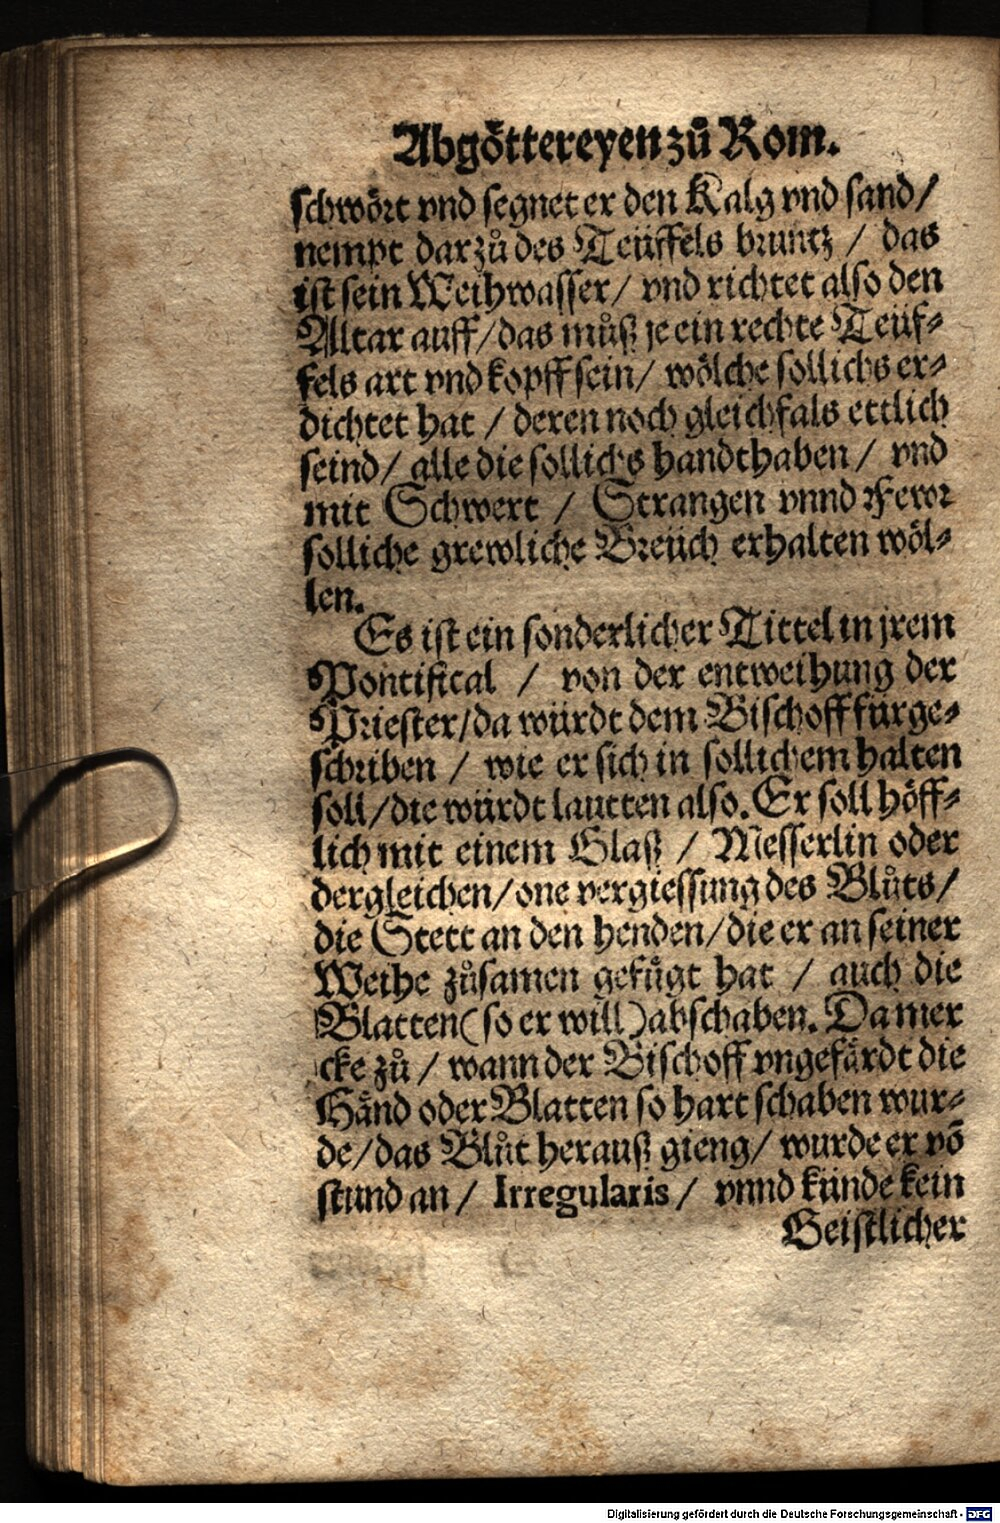 Abgöttereyen zů Rom.
schwört vnd segnet er den Kalg vnd sand/
nempt darzů des Teüffels bruntz / das
ist sein Weihwasser/ vnd richtet also den
Altar auff/das můß je ein rechte Teüf⸗
fels art vnd kopff sein/ wölche sollichs er⸗
dichtet hat / deren noch gleichfals ettlich
seind/ alle die sollichs handthaben/ vnd
mit Schwert / Strangen vnnd Fewr
solliche grewliche Breüch erhalten wöl⸗
len.
Es ist ein sonderlicher Tittel in jrem
Pontifical / von der entweihung der
Priester/da würdt dem Bischoff fürge⸗
schriben / wie er sich in sollichem halten
soll/die würdt lautten also. Er soll höff⸗
lich mit einem Glaß / Messerlin oder
dergleichen/one vergiessung des Blůts/
die Stett an den henden/die er an seiner
Weihe zůsamen gefügt hat / auch die
Blatten(so er will)abschaben. Da mer
cke zů / wann der Bischoff vngefärdt die
Händ oder Blatten so hart schaben wur⸗
de/das Blůt herauß gieng/ wurde er vō
stund an / Irregularis/ vnnd künde kein
Geistlicher
Digitalisierung gefördert durch die Deutsche Forschungsgemeinschaft - DFG